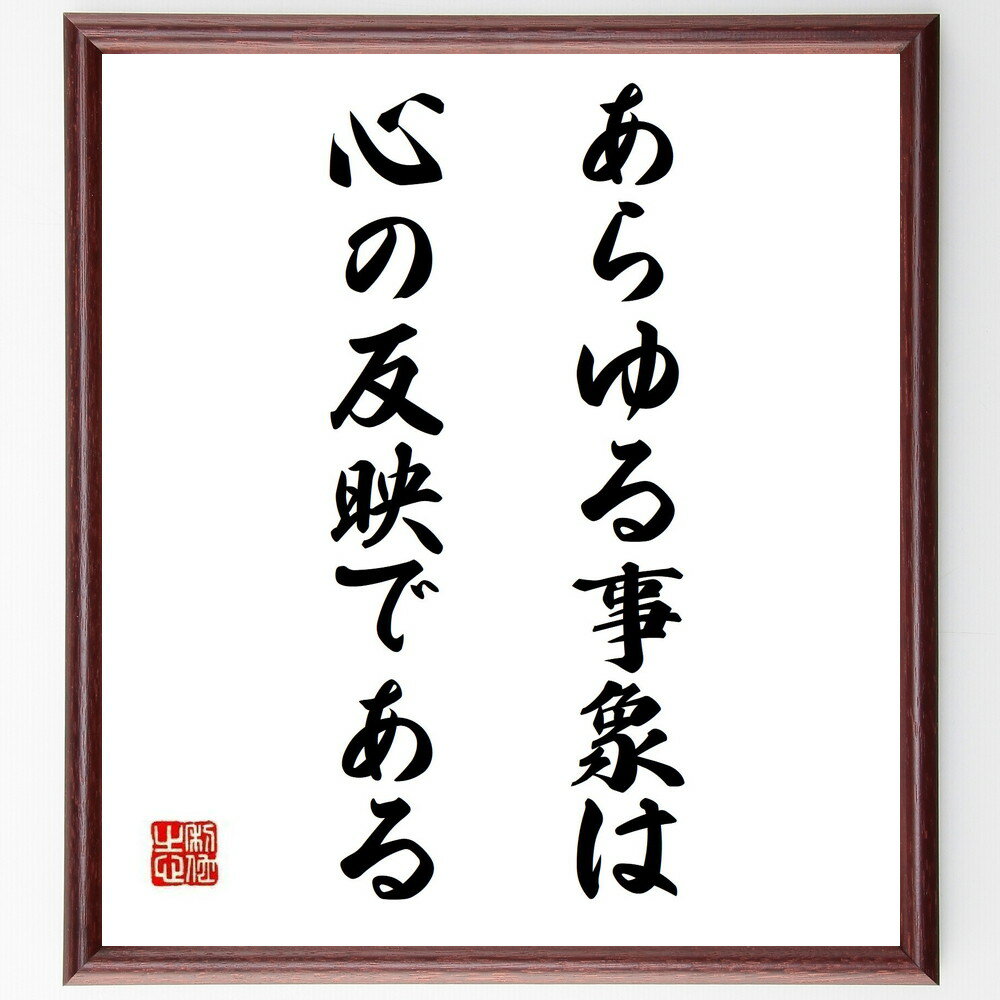 あらゆる事象は
心の反映である